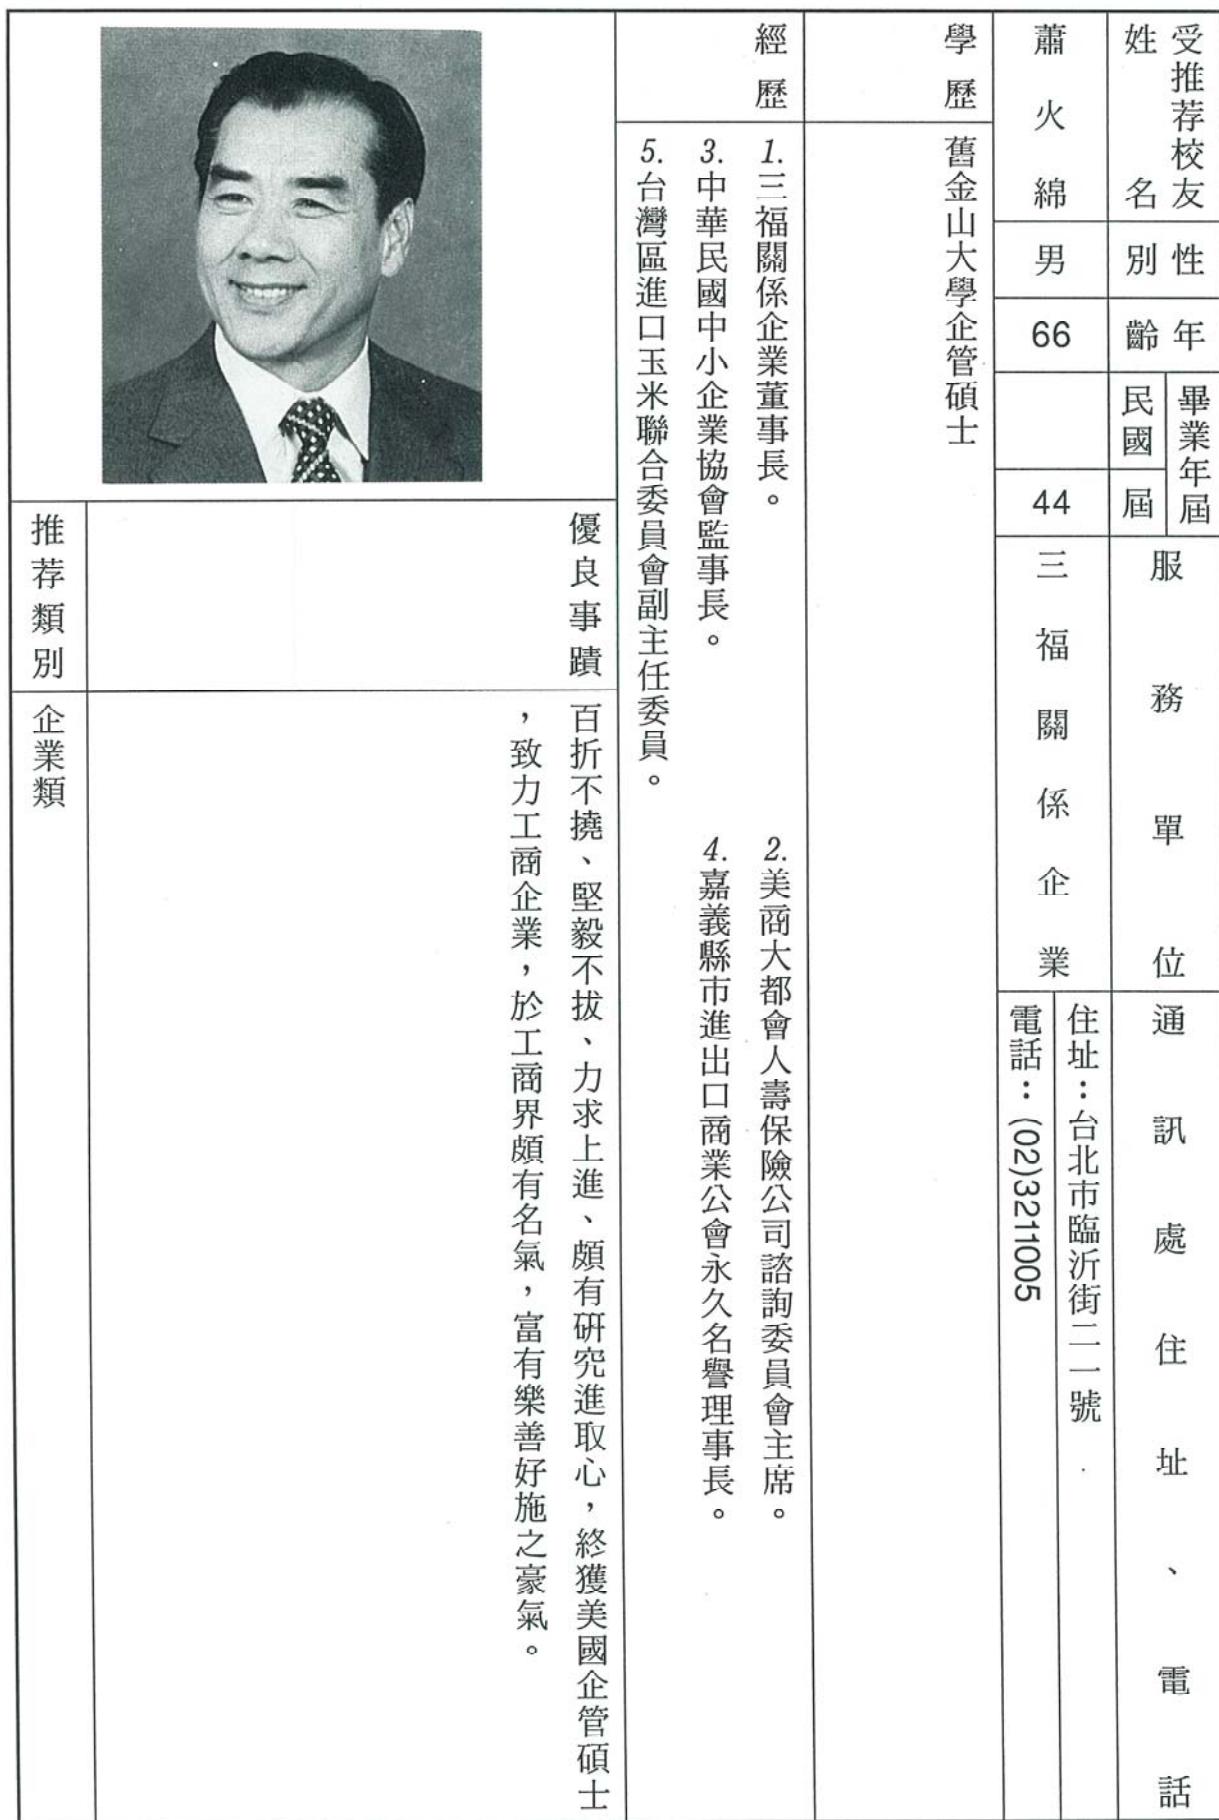 受推荐校友
姓名
性別
年齡
畢業年屆
民國
屆
服務單位
通訊處住址、電話
蕭火綿
男
66
44
三福關係企業
住址：台北市臨沂街二一號
電話：(02)3211005
學歷
舊金山大學企管碩士
經歷
1.三福關係企業董事長。
2.美商大都會人壽保險公司諮詢委員會主席。
3.中華民國中小企業協會監事長。
4.嘉義縣市進出口商業公會永久名譽理事長。
5.台灣區進口玉米聯合委員會副主任委員。
優良事蹟
百折不撓、堅毅不拔、力求上進、頗有研究進取心，終獲美國企管碩士
，致力工商企業，於工商界頗有名氣，富有樂善好施之豪氣。
推荐類別
企業類